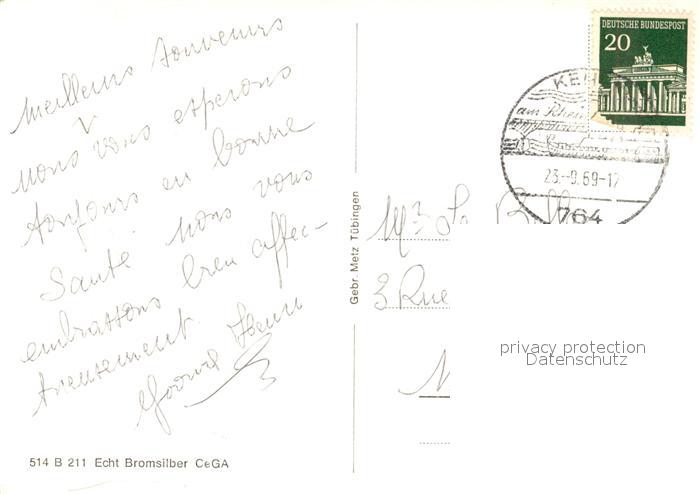 Meilleurs Souvenirs
nous vous espérons
toujours en bonne
Santé Nous vous
embrassons bien affec-
tueusement.
DEUTSCHE BUNDESPOST
20
KEH
am Rhein
23.-9.69-17
764
3 Rue
Gebr. Metz Tübingen
privacy protection
Datenschutz
514 B 211 Echt Bromsilber CeGA